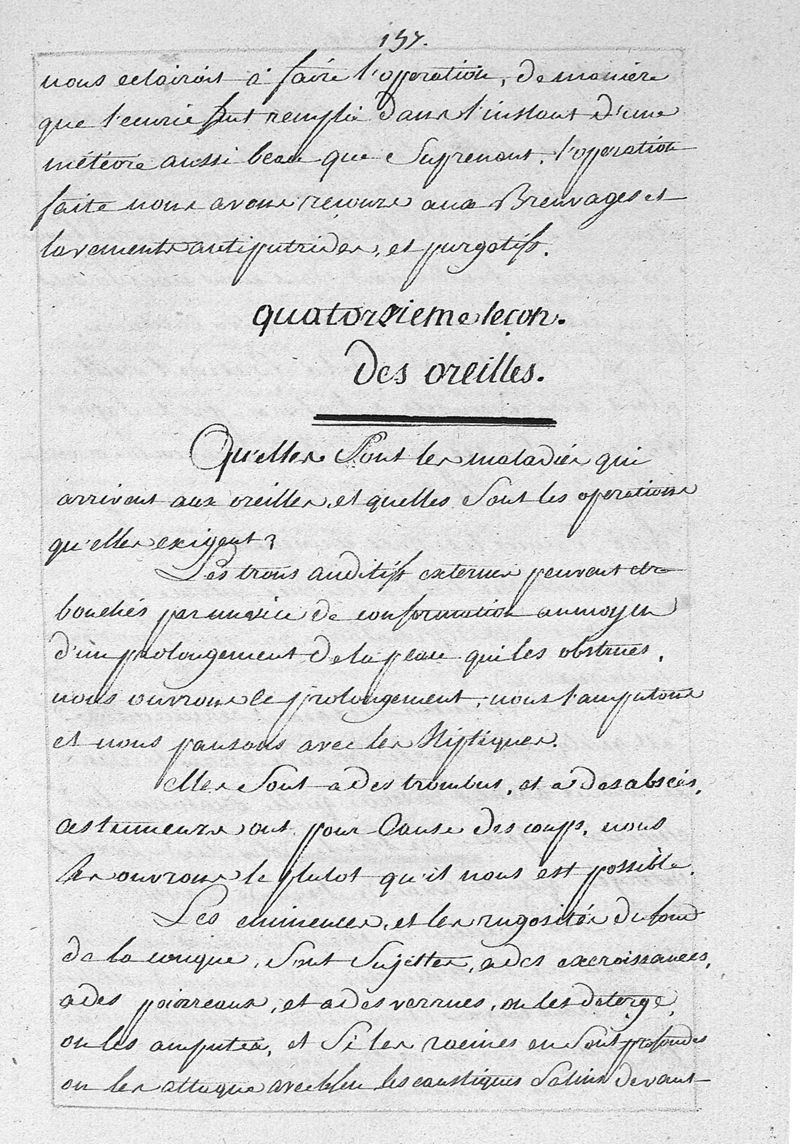 157.
nous eclairoit à faire l'operation, de maniére
que l'ecurie fut remplie dans l'instant d'une
météore aussi beau que Suprenant. l'operation
faite nous avons recours aux Breuvages et
lavements antiputrides, et purgatifs.
quatorzieme leçon.
Des oreilles.
Quelles Sont les maladies qui
arrivent aux oreilles, et quelles Sont les operations
qu'elles exigent?
Les trous auditifs externes peuvent etre
bouchés par un vice de conformation au moyen
d'un prolongement de la peau qui les obstrues.
nous ouvrons le prolongement, nous l'amputons
et nous pansons avec les Stiptiques.
elles Sont a des trombus, et a des abscés,
ces tumeurs ont pour Cause des coups, nous
les ouvrons le plutot qu'il nous est possible.
Les eminences, et les rugosités du fond
de la conque, Sont Sujettes, a des excroissances,
a des poirreaux, et a des verrues, on les deterge,
on les ampute, et Si les racines en Sont profondes
on les attaque avec les caustiques Salins devant